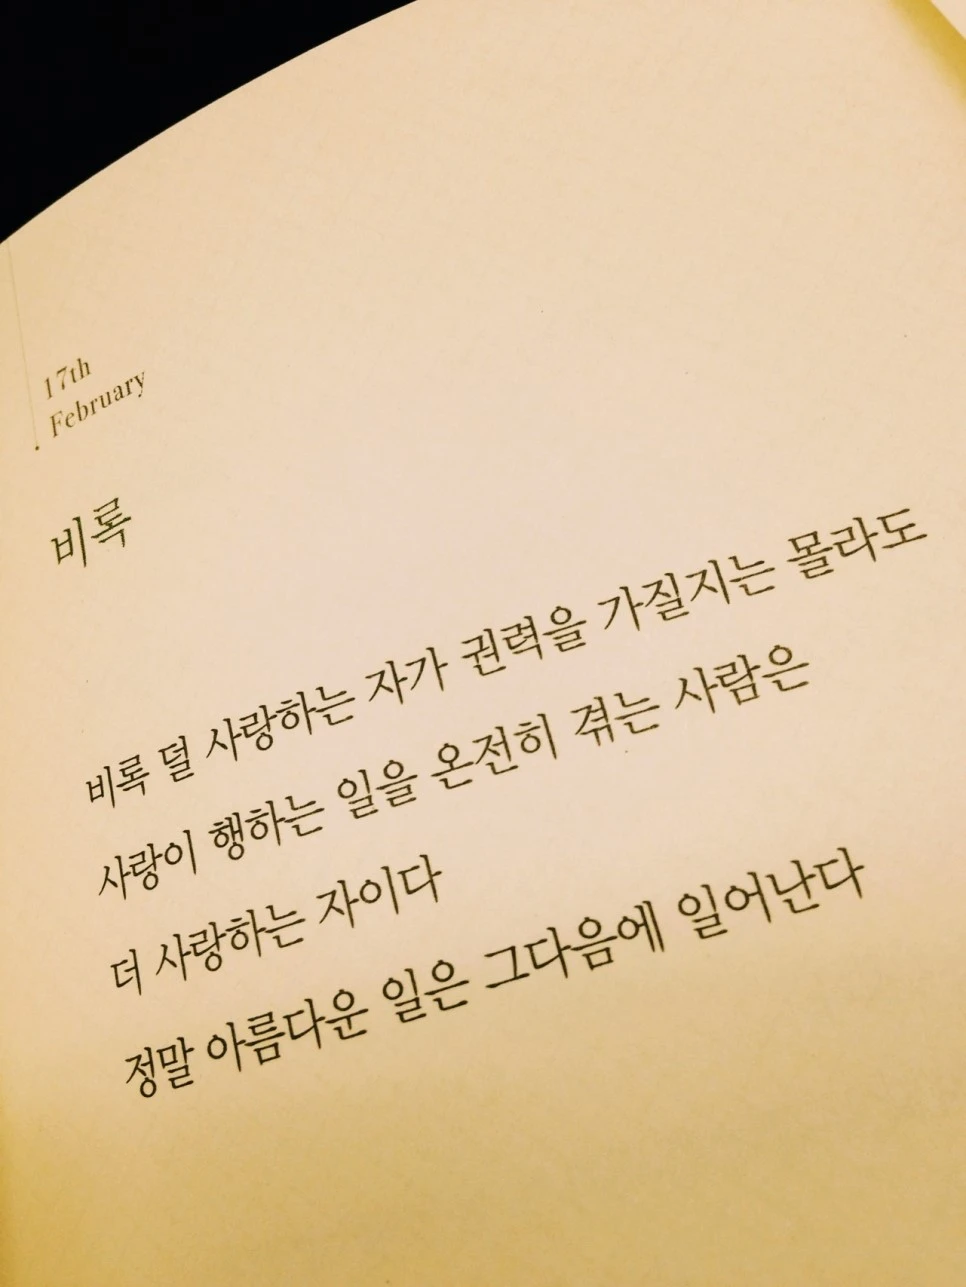 17th
February
비록
비록 덜 사랑하는 자가 권력을 가질지는 몰라도
사랑이 행하는 일을 온전히 겪는 사람은
더 사랑하는 자이다
정말 아름다운 일은 그다음에 일어난다